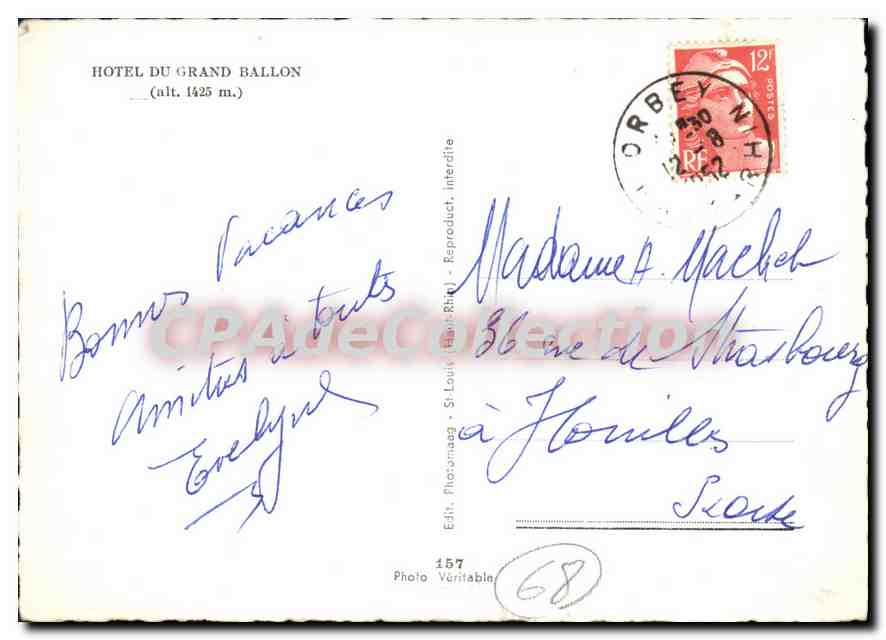 HOTEL DU GRAND BALLON
(alt. 1425 m.)
Bonnes Vacances
Amitiés à toutes
Evelyne
Edit. Photomaag - St-Louis (Haut-Rhin) - Reproduct. interdite
12F
POSTES
RF
ORBEY
HT RHIN
12 - 8
1952
Madame A.
36 rue de Strasbourg
à Houilles
157
Photo Véritable
68
CPAdeCollection